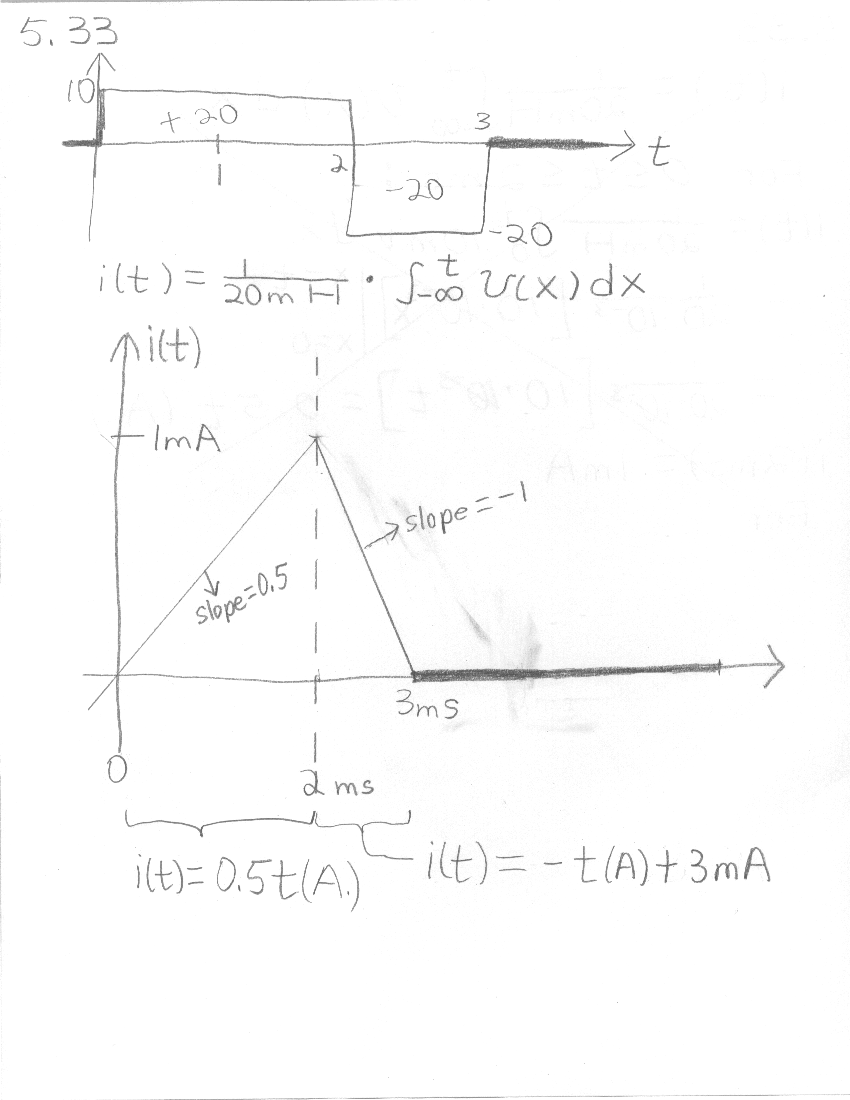 5.33
10
+ 20
3
t
2
1
-20
-20
i(t) = 1/20mH · ∫_{-∞}^{t} v(x) dx
i(t)
1mA
slope=-1
slope=0.5
3ms
0
2 ms
i(t)= 0.5t(A.)
i(t) = -t(A)+3mA